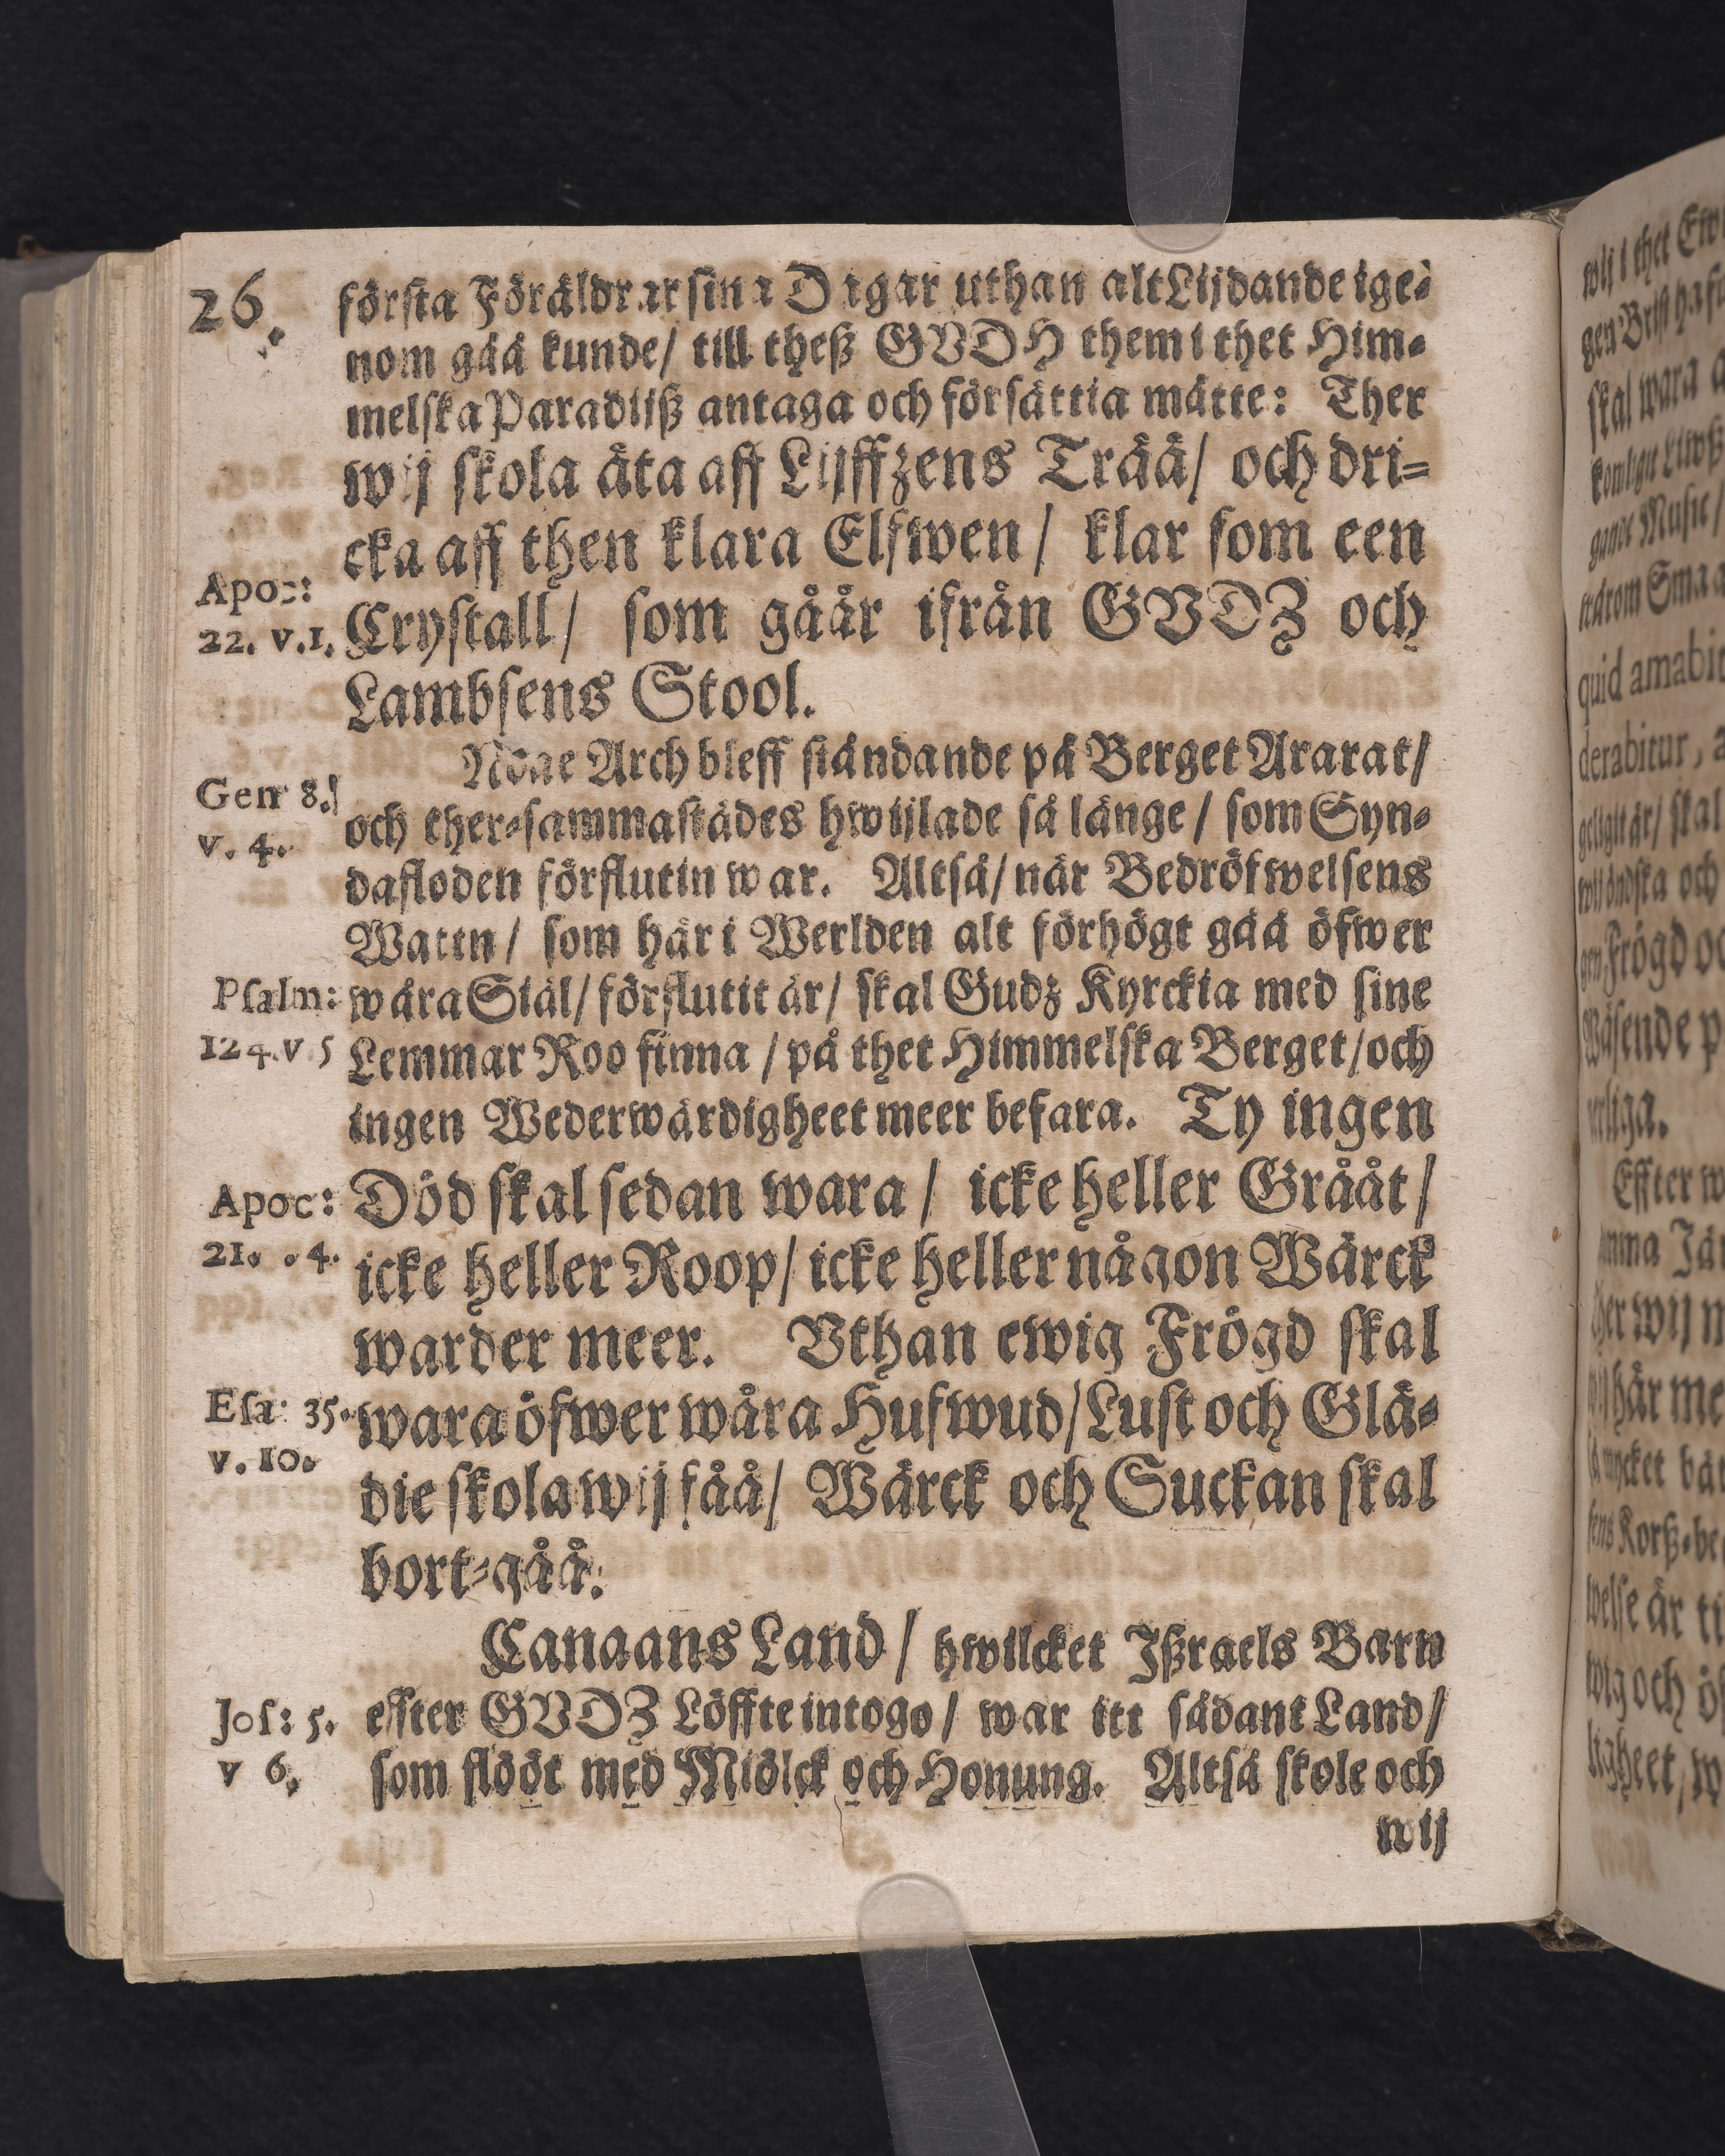 26.
första Föräldrar sina Dagar uthan alt Lijdande ige-
nom gåå kunde/ till theß GVDH them i thet Him-
melska Paradijß antaga och försättia måtte: Ther
wij skola äta aff Lijffzens Trää/ och dri-
cka aff then klara Elfwen/ klar som een
Apoc:
22. v.1.
Crystall/ som gåår ifrån GVDZ och
Lambsens Stool.
Noae Arch bleff ståndande på Berget Ararat/
Gen 8.
v. 4.
och ther-sammastädes hwijlade så länge/ som Syn-
dafloden förflutin war. Altså/ när Bedröfwelsens
Wattn/ som här i Werlden alt förhögt gåå öfwer
Psalm:
124. v 5
wåra Siäl/ förflutit är/ skal Gudz Kyrckia med sine
Lemmar Roo finna/ på thet Himmelska Berget/ och
ingen Wederwärdigheet meer befara. Ty ingen
Apoc:
21. . 4.
Död skal sedan wara/ icke heller Grååt/
icke heller Roop/ icke heller någon Wärck
warder meer. Vthan ewig Frögd skal
Esa: 35.
v. 10.
wara öfwer wåra Hufwud/ Lust och Glä-
die skola wij fåå/ Wärck och Suckan skal
bort-gåå.
Canaans Land/ hwilcket Ißraels Barn
Jos: 5.
v 6.
effter GVDZ Löffte intogo/ war itt sådant Land/
som flööt med Miölck och Honung. Altså skole och
wij